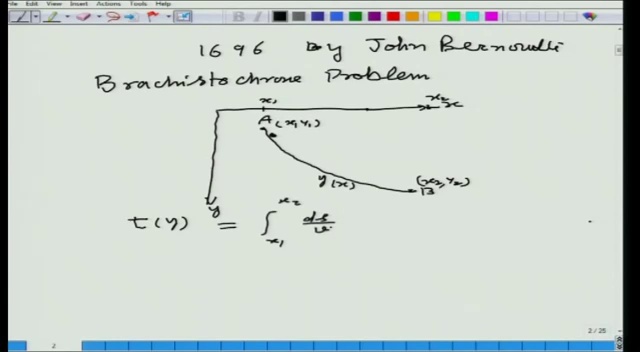 File Edit View Insert Actions Tools Help
1696 By John Bernoulli
Brachistochrone Problem
x₁ x₂ x
A (x₁, y₁)
y(x) (x₂, y₂)
B
y
t(y) = ∫ₓ₁ˣ² ds/v
2 / 25
2